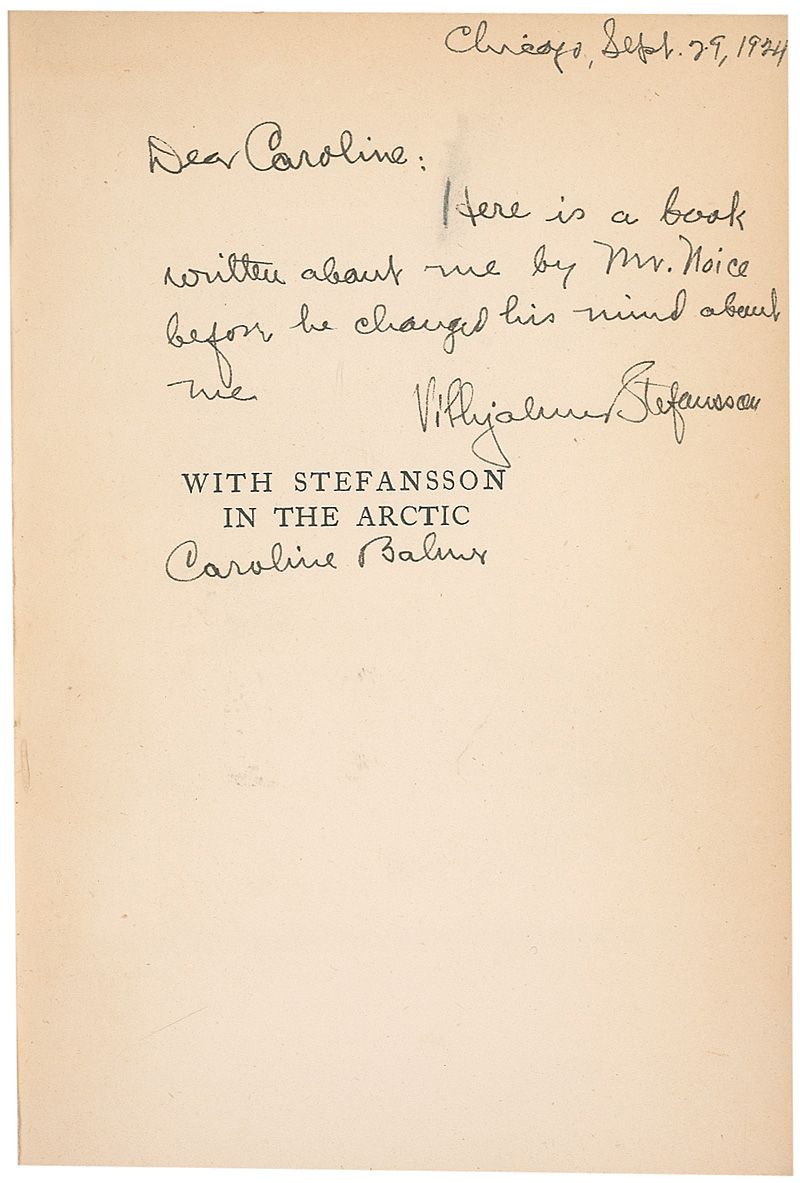 Chicago, Sept. 29, 1924
Dear Caroline:
Here is a book
written about me by Mr. Noice
before he changed his mind about
me.
Vilhjalmur Stefansson
WITH STEFANSSON
IN THE ARCTIC
Caroline Balmer